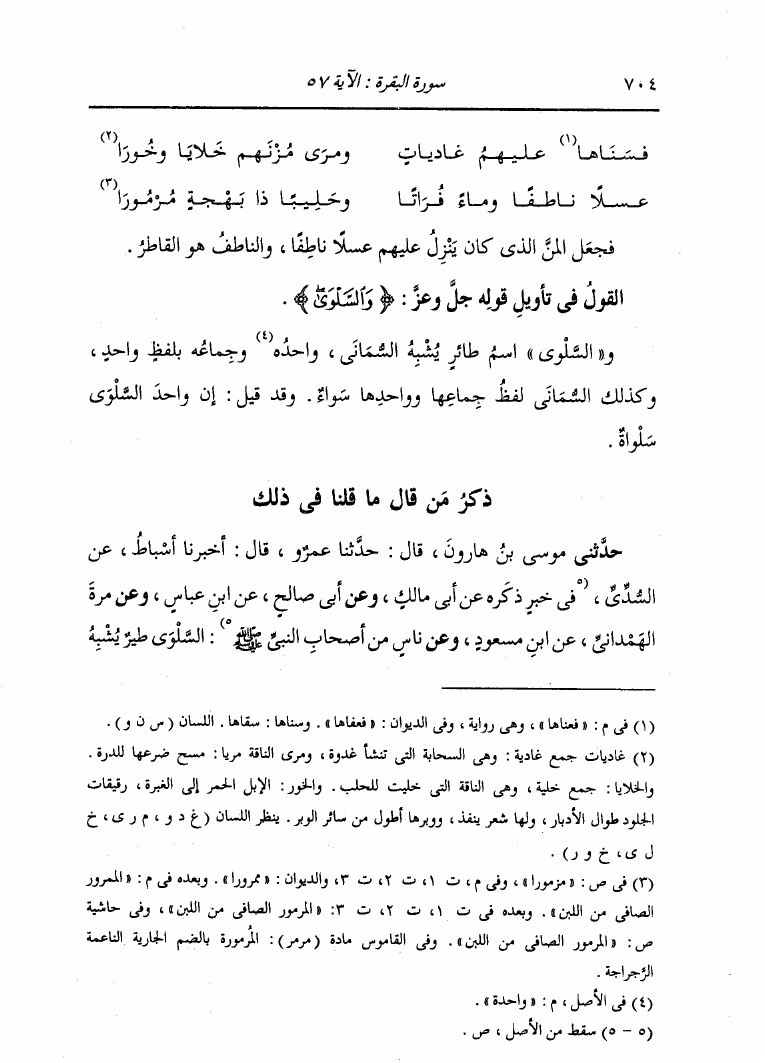 ٧٠٤ سورة البقرة : الآية ٥٧
فسَنَاها(١) عليهمُ غادياتٍ ومرَى مُزْنَهم خَلايَا وخُورَا(٢)
عسلًا ناطفًا وماءً فُرَاتًا وحَلِيبًا ذا بَهْجةٍ مُرْمُورَا(٣)
فجعَل المنَّ الذى كان يَنْزِلُ عليهم عسلًا ناطِفًا ، والناطفُ هو القاطرُ .
القولُ فى تأويلِ قولِه جلَّ وعزَّ : ﴿ وَالسَّلْوَىٰ ﴾ .
و« السَّلْوى » اسمُ طائرٍ يُشْبِهُ السُّمَانَى ، واحدُه(٤) وجِماعُه بلفظٍ واحدٍ ،
وكذلك السُّمَانَى لفظُ جِماعِها وواحدِها سَواءٌ . وقد قيل : إن واحدَ السَّلْوَى
سَلْواةٌ .
ذكرُ مَن قال ما قلنا فى ذلك
حدَّثنى موسى بنُ هارونَ ، قال : حدَّثنا عمرٌو ، قال : أخبرنا أسْباطُ ، عن
السُّدِّىِّ ، (٥فى خبرٍ ذكَره عن أبى مالكٍ ، وعن أبى صالحٍ ، عن ابنِ عباسٍ ، وعن مرةَ
الهَمْدانىِّ ، عن ابنِ مسعودٍ ، وعن ناسٍ من أصحابِ النبىِّ ﷺ ٥) : السَّلْوَى طيرٌ يُشْبِهُ
(١) فى م : « فعناها » ، وهى رواية ، وفى الديوان : « فعفاها » . وسناها : سقاها . اللسان ( س ن و ) .
(٢) غاديات جمع غادية : وهى السحابة التى تنشأ غدوة ، ومرى الناقة مريا : مسح ضرعها للدرة .
والخلايا : جمع خلية ، وهى الناقة التى خليت للحلب . والخور : الإبل الحمر إلى الغبرة ، رقيقات
الجلود طوال الأدبار ، ولها شعر ينفذ ، ووبرها أطول من سائر الوبر . ينظر اللسان ( غ د و ، م ر ى ، خ
ل ى ، خ و ر ) .
(٣) فى ص : « مزمورا » ، وفى م ، ت ١ ، ت ٢ ، ت ٣ ، والديوان : « ممرورا » . وبعده فى م : « الممرور
الصافى من اللبن » . وبعده فى ت ١ ، ت ٢ ، ت ٣ : « المرمور الصافى من اللبن » ، وفى حاشية
ص : « المرمور الصافى من اللبن » . وفى القاموس مادة ( مرمر ) : المُرمورة بالضم الجارية الناعمة
الرَّجراجة .
(٤) فى الأصل ، م : « واحدة » .
(٥ - ٥) سقط من الأصل ، ص .